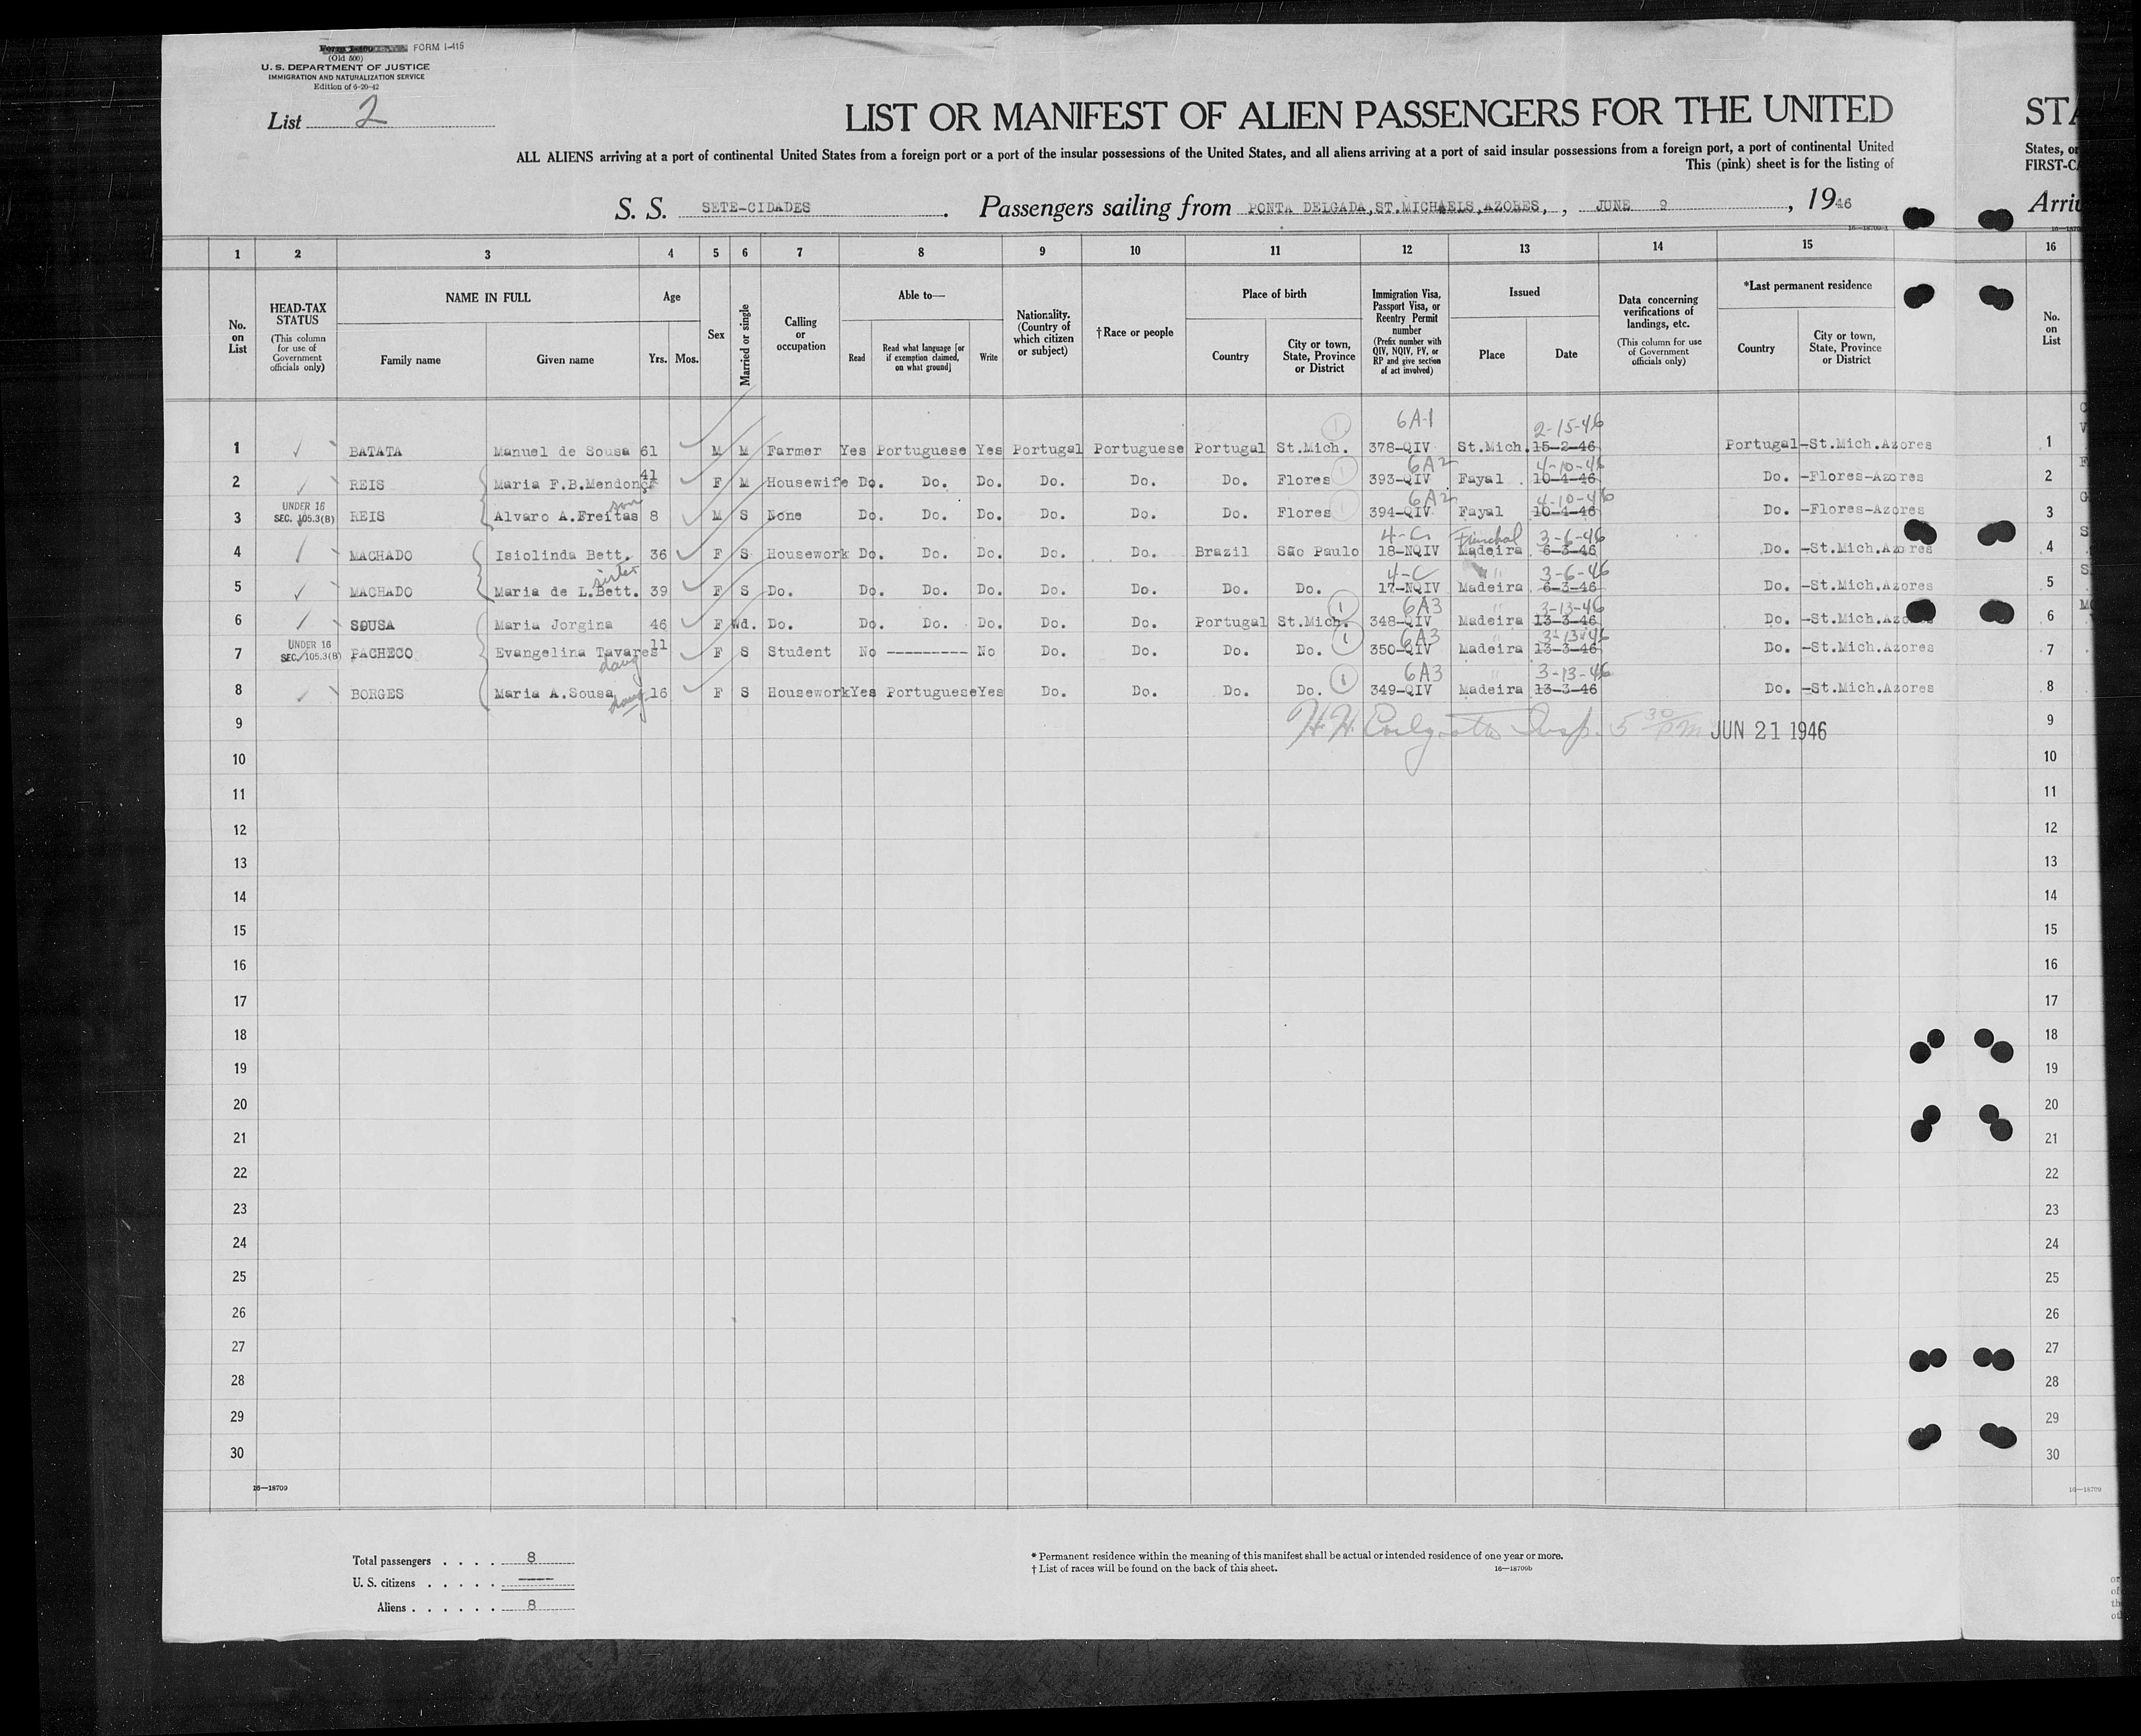 FORM I-415
(Old 500)
U. S. DEPARTMENT OF JUSTICE
IMMIGRATION AND NATURALIZATION SERVICE
Edition of 6-20-42
List 2
LIST OR MANIFEST OF ALIEN PASSENGERS FOR THE UNITED
ALL ALIENS arriving at a port of continental United States from a foreign port or a port of the insular possessions of the United States, and all aliens arriving at a port of said insular possessions from a foreign port, a port of continental United
This (pink) sheet is for the listing of
S. S. SETE-CIDADES. Passengers sailing from PONTA DELGADA, ST.MICHAELS, AZORES, , JUNE 9 , 1946
STA
States, or
FIRST-CA
Arriv
1 2 3 4 5 6 7 8 9 10 11 12 13 14 15 16
No. on List
HEAD-TAX STATUS (This column for use of Government officials only)
NAME IN FULL
Family name
Given name
Age
Yrs. Mos.
Sex
Married or single
Calling or occupation
Able to—
Read
Read what language [or if exemption claimed, on what ground]
Write
Nationality. (Country of which citizen or subject)
†Race or people
Place of birth
Country
City or town, State, Province or District
Immigration Visa, Passport Visa, or Reentry Permit number (Prefix number with QIV, NQIV, PV, or RP and give section of act involved)
Issued
Place
Date
Data concerning verifications of landings, etc. (This column for use of Government officials only)
*Last permanent residence
Country
City or town, State, Province or District
No. on List
6A-1 2-15-46
1 BATATA Manuel de Sousa 61 M M Farmer Yes Portuguese Yes Portugal Portuguese Portugal St.Mich. 378-QIV St.Mich. 15-2-46 Portugal-St.Mich.Azores 1
41 6A2 4-10-46
2 REIS Maria F.B.Mendonça F M Housewife Do. Do. Do. Do. Do. Do. Flores 393-QIV Fayal 10-4-46 Do. -Flores-Azores 2
UNDER 16 SEC. 105.3(B) son 6A2 4-10-46
3 REIS Alvaro A.Freitas 8 M S None Do. Do. Do. Do. Do. Do. Flores 394-QIV Fayal 10-4-46 Do. -Flores-Azores 3
4-C Funchal 3-6-46
4 MACHADO Isiolinda Bett. 36 F S Housework Do. Do. Do. Do. Do. Brazil São Paulo 18-NQIV Madeira 6-3-46 Do. -St.Mich.Azores 4
sister 4-C " 3-6-46
5 MACHADO Maria de L.Bett. 39 F S Do. Do. Do. Do. Do. Do. Do. Do. 17-NQIV Madeira 6-3-46 Do. -St.Mich.Azores 5
6A3 " 3-13-46
6 SOUSA Maria Jorgina 46 F Wd. Do. Do. Do. Do. Do. Do. Portugal St.Mich. 348-QIV Madeira 13-3-46 Do. -St.Mich.Azores 6
UNDER 16 SEC. 105.3(B) 6A3 " 3-13-46
7 PACHECO Evangelina Tavares 11 F S Student No --------- No Do. Do. Do. Do. 350-QIV Madeira 13-3-46 Do. -St.Mich.Azores 7
daug 6A3 " 3-13-46
8 BORGES Maria A.Sousa 16 F S Housework Yes Portuguese Yes Do. Do. Do. Do. 349-QIV Madeira 13-3-46 Do. -St.Mich.Azores 8
daug
9 H.H. Insp. 5 30 PM JUN 21 1946 9
10 10
11 11
12 12
13 13
14 14
15 15
16 16
17 17
18 18
19 19
20 20
21 21
22 22
23 23
24 24
25 25
26 26
27 27
28 28
29 29
30 30
16—18709
16—18709
Total passengers . . . . 8
U. S. citizens . . . . . —
Aliens . . . . . . 8
* Permanent residence within the meaning of this manifest shall be actual or intended residence of one year or more.
† List of races will be found on the back of this sheet.
16—18709b